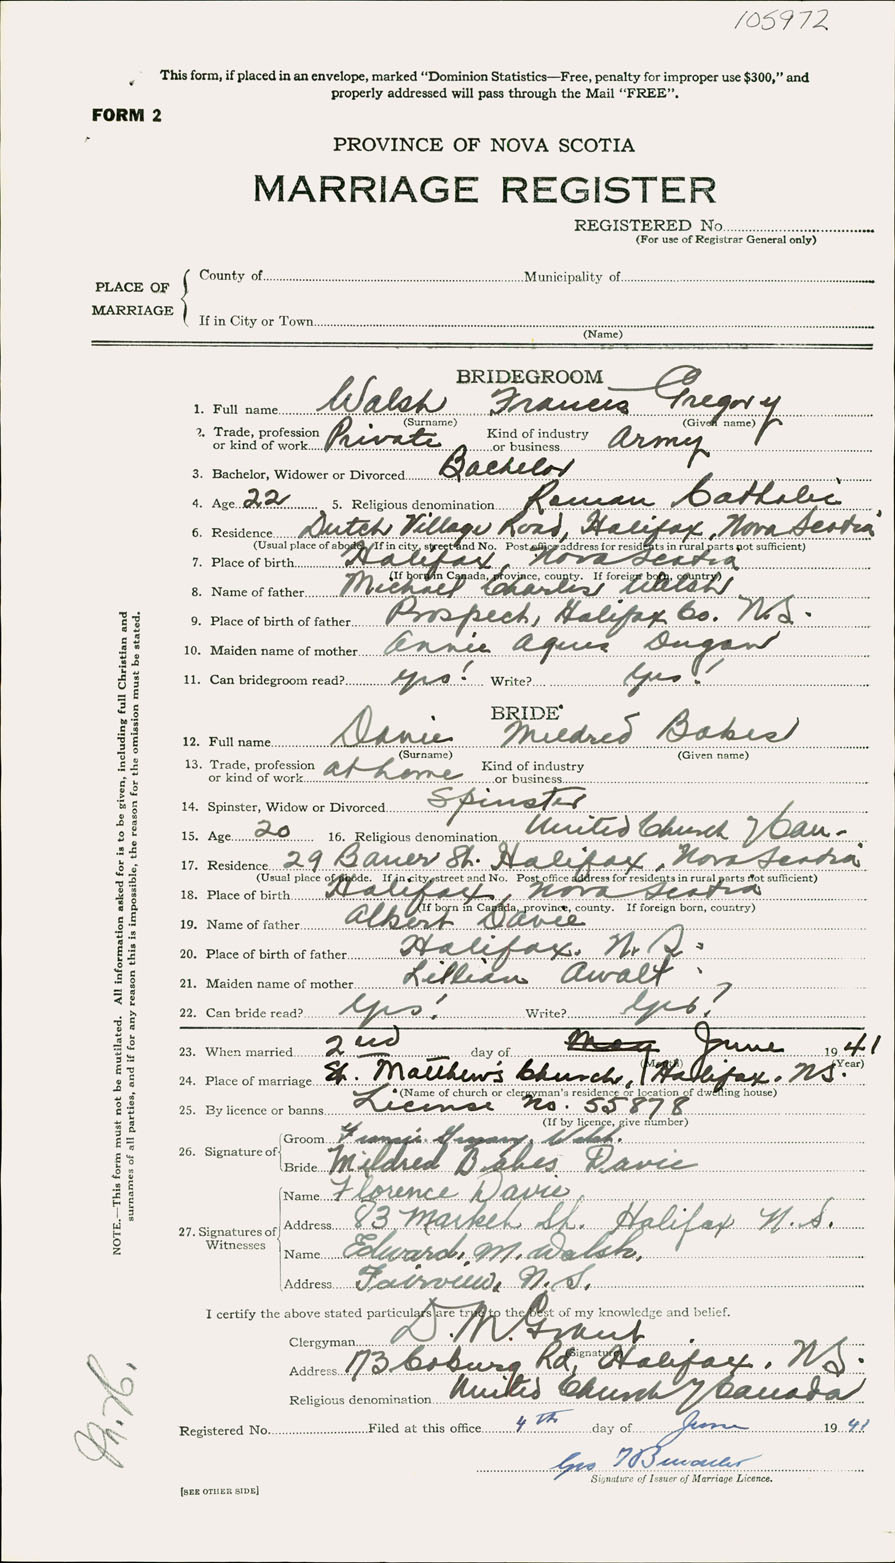 105972
This form, if placed in an envelope, marked "Dominion Statistics—Free, penalty for improper use $300," and
properly addressed will pass through the Mail "FREE".
FORM 2
PROVINCE OF NOVA SCOTIA
MARRIAGE REGISTER
REGISTERED No.
(For use of Registrar General only)
PLACE OF MARRIAGE
County of Municipality of
If in City or Town
(Name)
BRIDEGROOM
1. Full name Walsh Francis Gregory
(Surname) (Given name)
2. Trade, profession or kind of work Private Kind of industry or business Army
3. Bachelor, Widower or Divorced Bachelor
4. Age 22 5. Religious denomination Roman Catholic
6. Residence Dutch Village Road, Halifax, Nova Scotia
(Usual place of abode. If in city, street and No. Post office address for residents in rural parts not sufficient)
7. Place of birth Halifax, Nova Scotia
(If born in Canada, province, county. If foreign born, country)
8. Name of father Michael Charles Walsh
9. Place of birth of father Prospect, Halifax Co. N.S.
10. Maiden name of mother Annie Agnes Dugan
11. Can bridegroom read? Yes! Write? Yes!
BRIDE
12. Full name Davie Mildred Bakes
(Surname) (Given name)
13. Trade, profession or kind of work at home Kind of industry or business
14. Spinster, Widow or Divorced Spinster
15. Age 20 16. Religious denomination United Church of Can-
17. Residence 29 Bauer St. Halifax, Nova Scotia
(Usual place of abode. If in city, street and No. Post office address for residents in rural parts not sufficient)
18. Place of birth Halifax, Nova Scotia
(If born in Canada, province, county. If foreign born, country)
19. Name of father Albert Davie
20. Place of birth of father Halifax. N.S.
21. Maiden name of mother Lillian Awalt
22. Can bride read? Yes! Write? Yes!
23. When married 2nd day of May June 1941
(Month) (Year)
24. Place of marriage St. Matthew's Church, Halifax. N.S.
(Name of church or clergyman's residence or location of dwelling house)
25. By licence or banns License No. 55878
(If by licence, give number)
26. Signature of
Groom Francis Gregory Walsh.
Bride Mildred Bakes Davie
27. Signatures of Witnesses
Name Florence Davie
Address 83 Market St. Halifax N.S.
Name Edward. M. Walsh.
Address Fairview, N.S.
I certify the above stated particulars are true to the best of my knowledge and belief.
Clergyman D. M. Grant
(Signature)
Address 173 Coburg Rd, Halifax, N.S.
Religious denomination United Church of Canada
Registered No. Filed at this office 4th day of June 1941
Geo
Signature of Issuer of Marriage Licence.
[SEE OTHER SIDE]
NOTE.—This form must not be mutilated. All information asked for is to be given, including full Christian and
surnames of all parties, and if for any reason this is impossible, the reason for the omission must be stated.